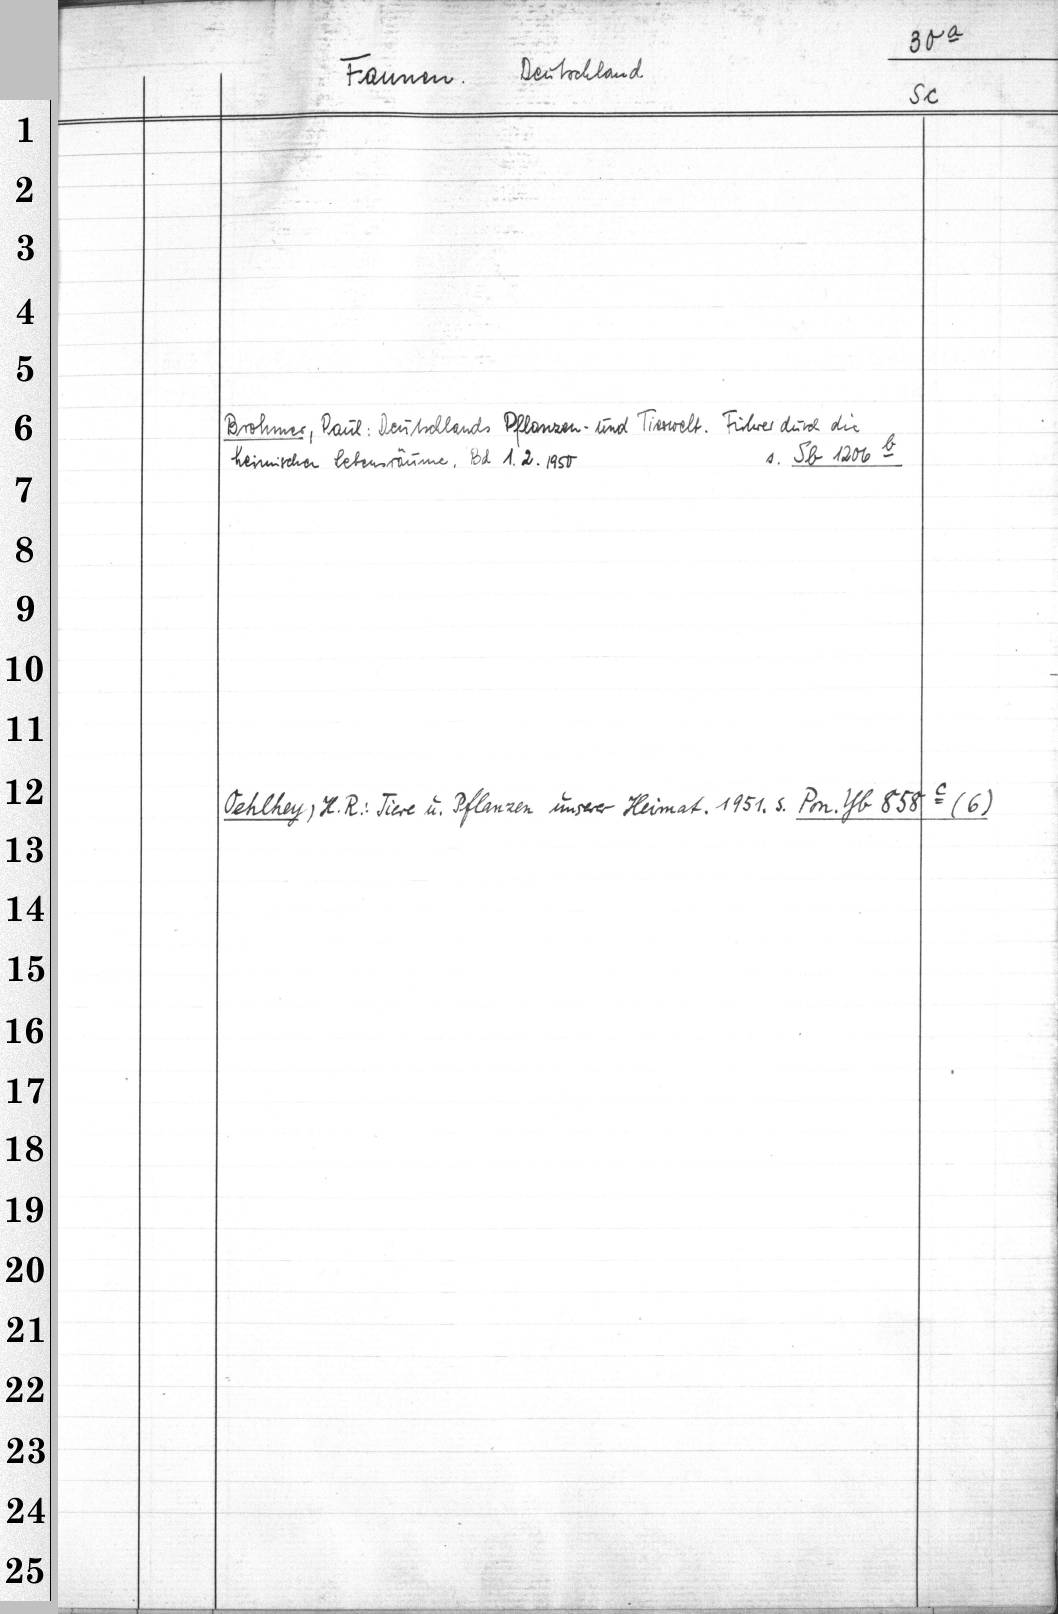 30a
Faunen. Deutschland
Sc
1
2
3
4
5
6 Brohmer, Paul: Deutschlands Pflanzen- und Tierwelt. Führer durch die
heimischen Lebensräume. Bd 1.2. 1950 s. Sb 1206 b
7
8
9
10
11
12 Oehlhey, H.R.: Tiere u. Pflanzen unserer Heimat. 1951. s. Pon. Yb 858 c (6)
13
14
15
16
17
18
19
20
21
22
23
24
25